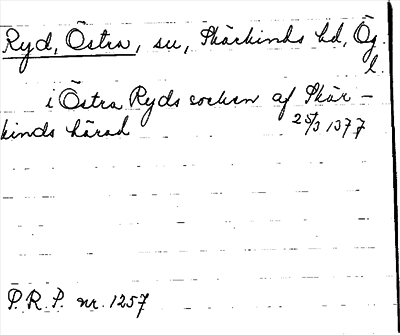 Ryd, Östra, su, Skärkinds hd, Ög.
l.
i Östra Ryds socken af Skär-
kinds härad
25/3 1377
P.R.P. nr. 1257